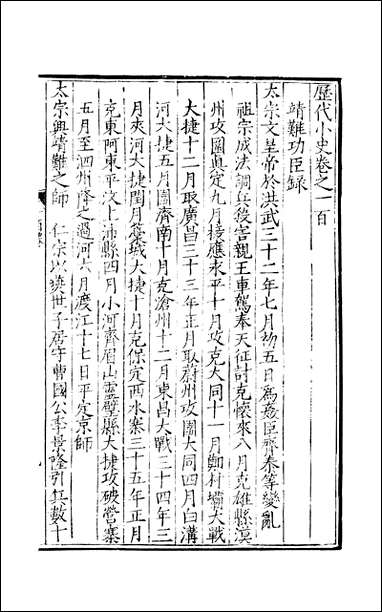 歷代小史卷之一百
靖難功臣錄
太宗文皇帝於洪武三十二年七月初五日為姦臣齊泰等變亂
祖宗成法調兵殘害親王車駕奉天征討克懷來八月克雄縣漠
州攻圍真定九月援應永平十月攻克大同十一月鄭村壩大戰
大捷十二月取廣昌三十三年正月取蔚州攻圍大同四月白溝
河大捷五月圍濟南十月克滄州十二月東昌大戰三十四年三
月夾河大捷閏月藁城大捷十月克保定西水寨三十五年正月
克東阿東平汶上沛縣四月小河齊眉山靈壁縣大捷攻破營寨
五月至泗州降之過河六月渡江十七日平定京師
太宗興靖難之師 仁宗以燕世子居守曹國公李景隆引兵數十